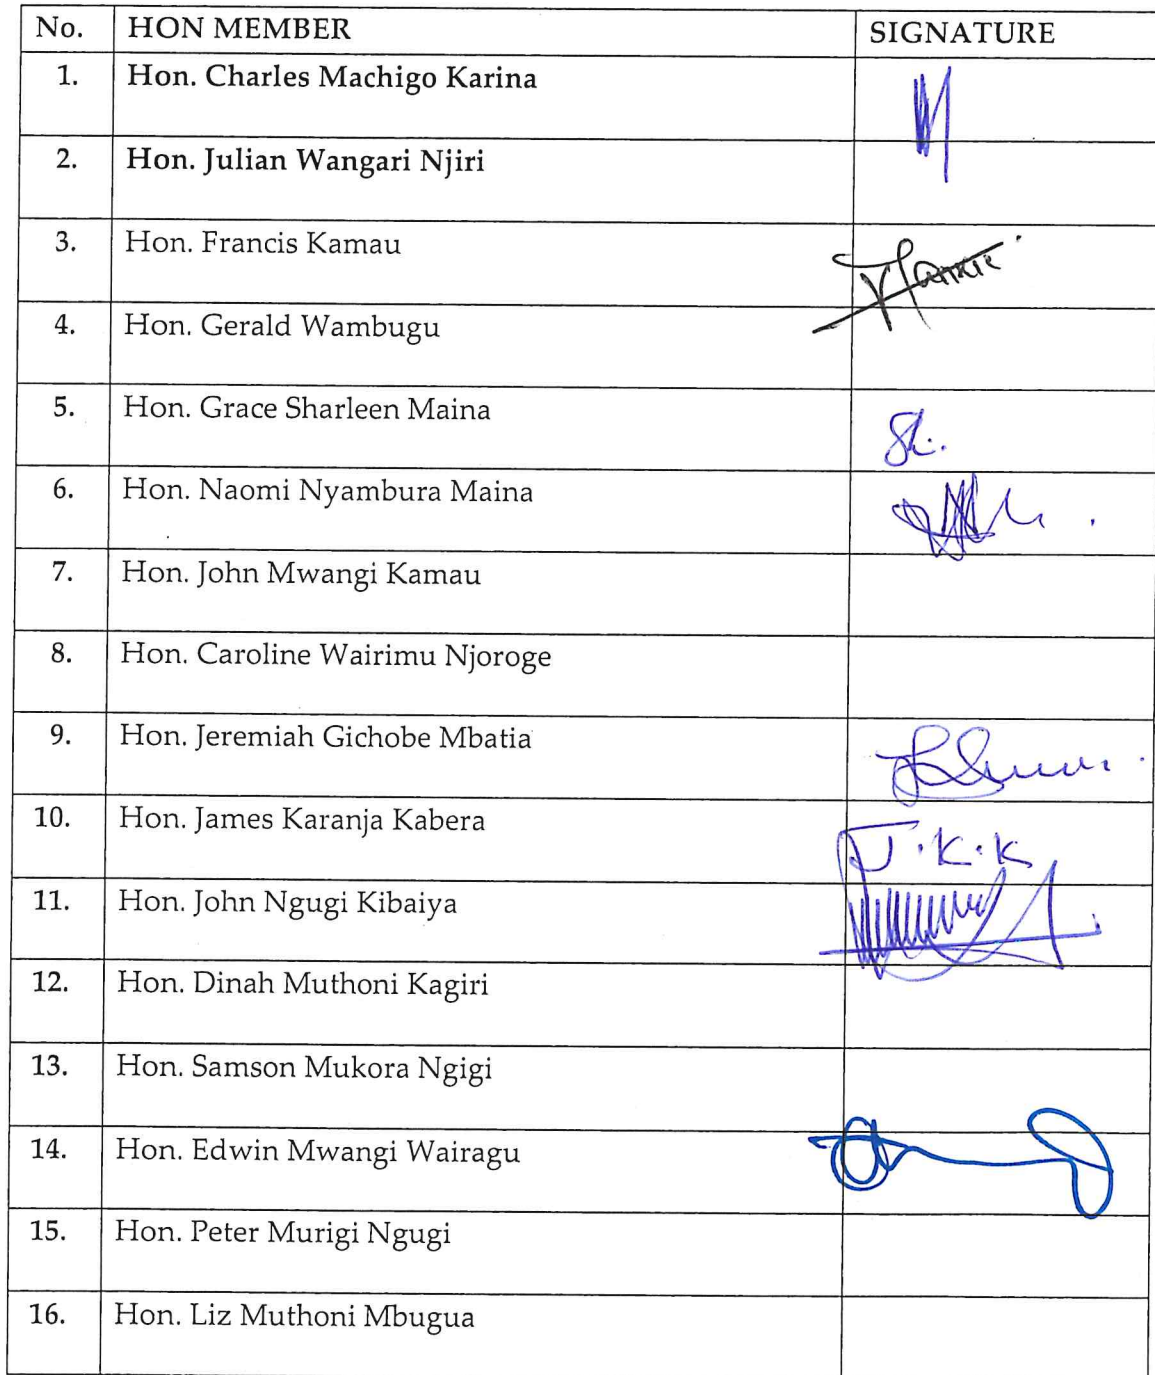 No. HON MEMBER SIGNATURE
1. Hon. Charles Machigo Karina
2. Hon. Julian Wangari Njiri
3. Hon. Francis Kamau
4. Hon. Gerald Wambugu
5. Hon. Grace Sharleen Maina
6. Hon. Naomi Nyambura Maina
7. Hon. John Mwangi Kamau
8. Hon. Caroline Wairimu Njoroge
9. Hon. Jeremiah Gichobe Mbatia
10. Hon. James Karanja Kabera J.K.K
11. Hon. John Ngugi Kibaiya
12. Hon. Dinah Muthoni Kagiri
13. Hon. Samson Mukora Ngigi
14. Hon. Edwin Mwangi Wairagu
15. Hon. Peter Murigi Ngugi
16. Hon. Liz Muthoni Mbugua